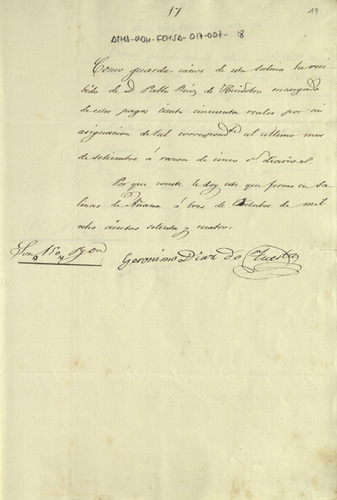 17
19
ATHA-DAH-FCHSA-017-007-18
Como guarda-caños de esta salina he reci-
bido de D. Pablo Ruiz de Huidobro encargado
de estos pagos ciento cincuenta reales por mi
asignacion de tal correspond.te al ultimo mes
de setiembre á razon de cinco r.s diarios.
Por que conste le doy este que firmo en Sa-
linas de Añana á tres de Octubre de mil
ocho cientos setenta y cuatro.
Son 150 r.s von
Geronimo Diaz de Tuesta